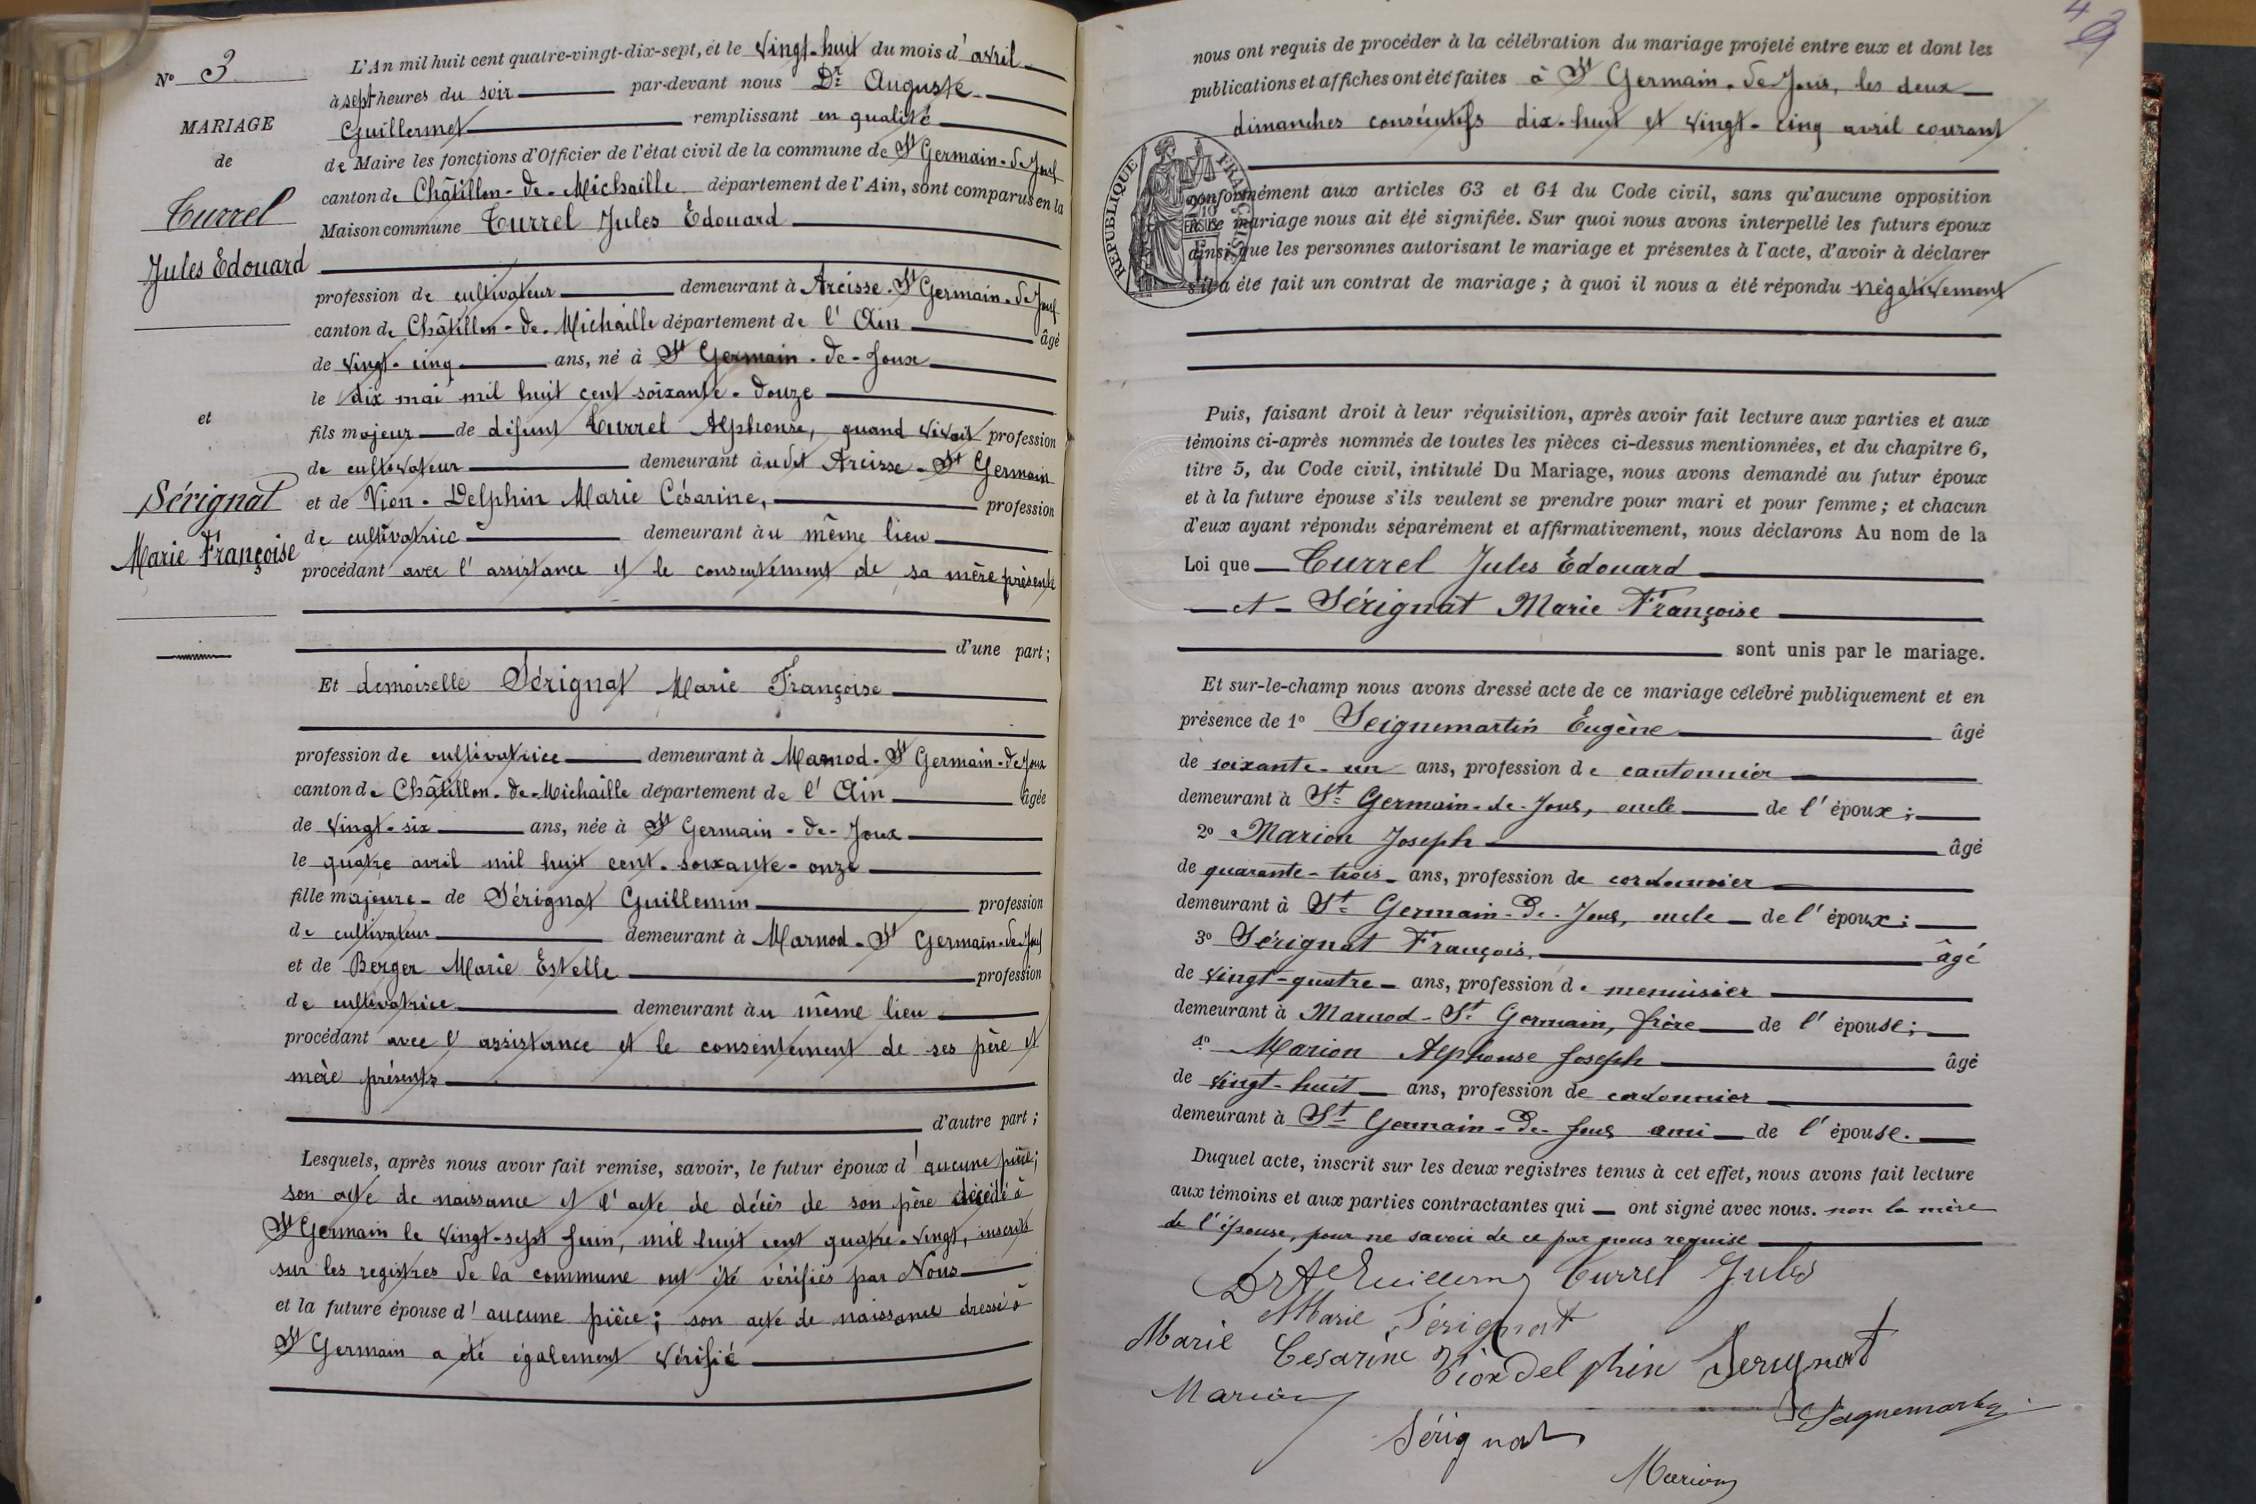 N° 3
MARIAGE
de
Turrel
Jules Edouard
et
Sérignat
Marie Françoise
L'An mil huit cent quatre-vingt-dix-sept, et le vingt-huit du mois d'avril
à sept heures du soir par-devant nous Dr Auguste
Guillermet remplissant en qualité
de Maire les fonctions d'Officier de l'état civil de la commune de St Germain-de-Joux
canton de Châtillon-de-Michaille département de l'Ain, sont comparus en la
Maison commune Turrel Jules Edouard
profession de cultivateur demeurant à Arcisse-St Germain-de-Joux
canton de Châtillon-de-Michaille département de l'Ain âgé
de vingt-cinq ans, né à St Germain-de-Joux
le dix mai mil huit cent soixante-douze
fils majeur de défunt Turrel Alphonse, quand vivait profession
de cultivateur demeurant àudit Arcisse-St Germain
et de Vion-Delphin Marie Césarine, profession
de cultivatrice demeurant àu même lieu
procédant avec l'assistance et le consentement de sa mère présente
d'une part;
Et demoiselle Sérignat Marie Françoise
profession de cultivatrice demeurant à Marnod-St Germain-de-Joux
canton de Châtillon-de-Michaille département de l'Ain âgée
de vingt-six ans, née à St Germain-de-Joux
le quatre avril mil huit cent-soixante-onze
fille majeure de Sérignat Guillemin profession
de cultivateur demeurant à Marnod-St Germain-de-Joux
et de Berger Marie Estelle profession
de cultivatrice demeurant àu même lieu
procédant avec l'assistance et le consentement de ses père et
mère présents
d'autre part;
Lesquels, après nous avoir fait remise, savoir, le futur époux d'aucune pièce;
son acte de naissance et l'acte de décès de son père décédé à
St Germain le vingt-sept juin, mil huit cent quatre-vingt, inscrits
sur les registres de la commune ont été vérifiés par Nous
et la future épouse d'aucune pièce; son acte de naissance dressé à
St Germain a été également vérifié
nous ont requis de procéder à la célébration du mariage projeté entre eux et dont les
publications et affiches ont été faites à St Germain-de-Joux, les deux
dimanches consécutifs dix-huit et vingt-cinq avril courant
RÉPUBLIQUE FRANÇAISE
conformément aux articles 63 et 64 du Code civil, sans qu'aucune opposition
mariage nous ait été signifiée. Sur quoi nous avons interpellé les futurs époux
ainsi que les personnes autorisant le mariage et présentes à l'acte, d'avoir à déclarer
s'il a été fait un contrat de mariage; à quoi il nous a été répondu négativement
Puis, faisant droit à leur réquisition, après avoir fait lecture aux parties et aux
témoins ci-après nommés de toutes les pièces ci-dessus mentionnées, et du chapitre 6,
titre 5, du Code civil, intitulé Du Mariage, nous avons demandé au futur époux
et à la future épouse s'ils veulent se prendre pour mari et pour femme; et chacun
d'eux ayant répondu séparément et affirmativement, nous déclarons Au nom de la
Loi que Turrel Jules Edouard
et Sérignat Marie Françoise
sont unis par le mariage.
Et sur-le-champ nous avons dressé acte de ce mariage célébré publiquement et en
présence de 1° Seignemartin Eugène âgé
de soixante-un ans, profession de cantonnier
demeurant à St Germain-de-Joux, oncle de l'époux;
2° Marion Joseph âgé
de quarante-trois ans, profession de cordonnier
demeurant à St Germain-De-Joux, oncle de l'époux;
3° Sérignat François, âgé
de vingt-quatre ans, profession de menuisier
demeurant à Marnod-St Germain, frère de l'épouse;
4° Marion Alphonse Joseph âgé
de vingt-huit ans, profession de cordonnier
demeurant à St Germain-De-Joux ami de l'épouse.
Duquel acte, inscrit sur les deux registres tenus à cet effet, nous avons fait lecture
aux témoins et aux parties contractantes qui ont signé avec nous. non la mère
de l'épouse, pour ne savoir de ce par nous requise
Dr A Guillermet Turrel Jules
Marie Sérignat
Marie Cesarine Vion Delphin Serignat
Marion Seignemartin
Sérignat
Marion